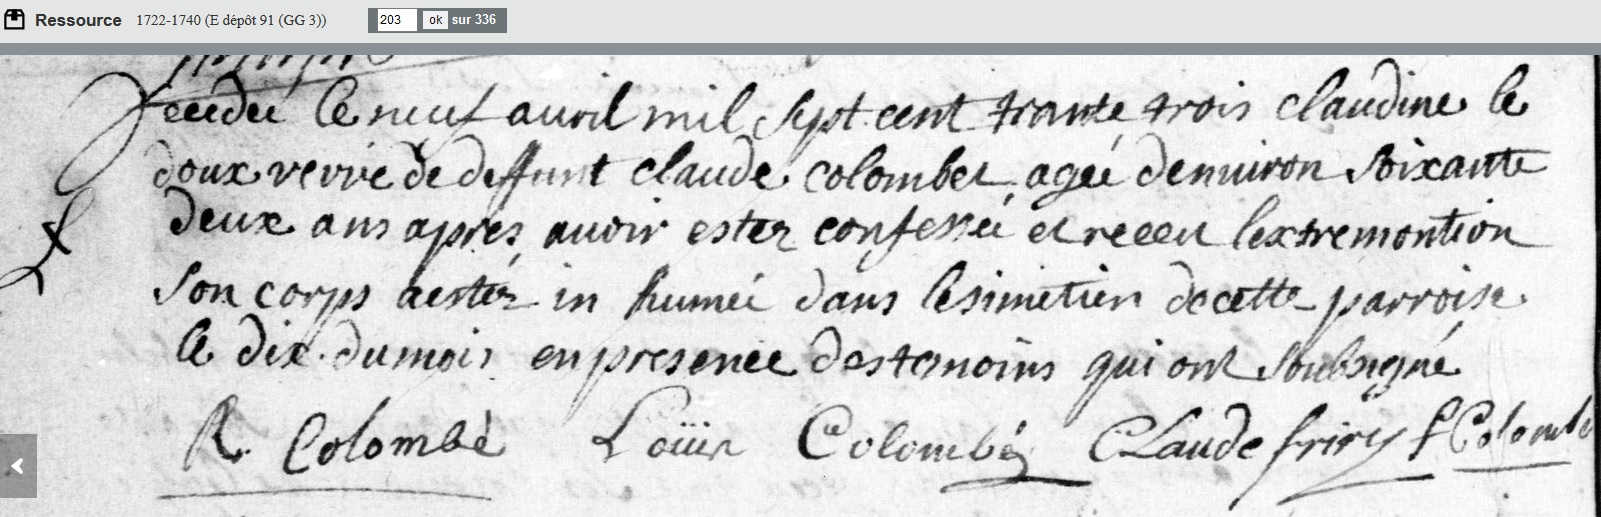 Ressource 1722-1740 (E dépôt 91 (GG 3)) 203 ok sur 336
decedee le neuf avril mil sept cent trante trois claudine le
doux vevve de deffunt claude colombet agéé denuiron soixante
deux ans apres auoir ester confesséé et receu lextremontion
son corps aestéz in huméé dans lesimetier decette parroise
le dix dumois enpresence destemoins qui ont soubsigné
R. Colombé Loüis Colombéz Claude friry f Colombé